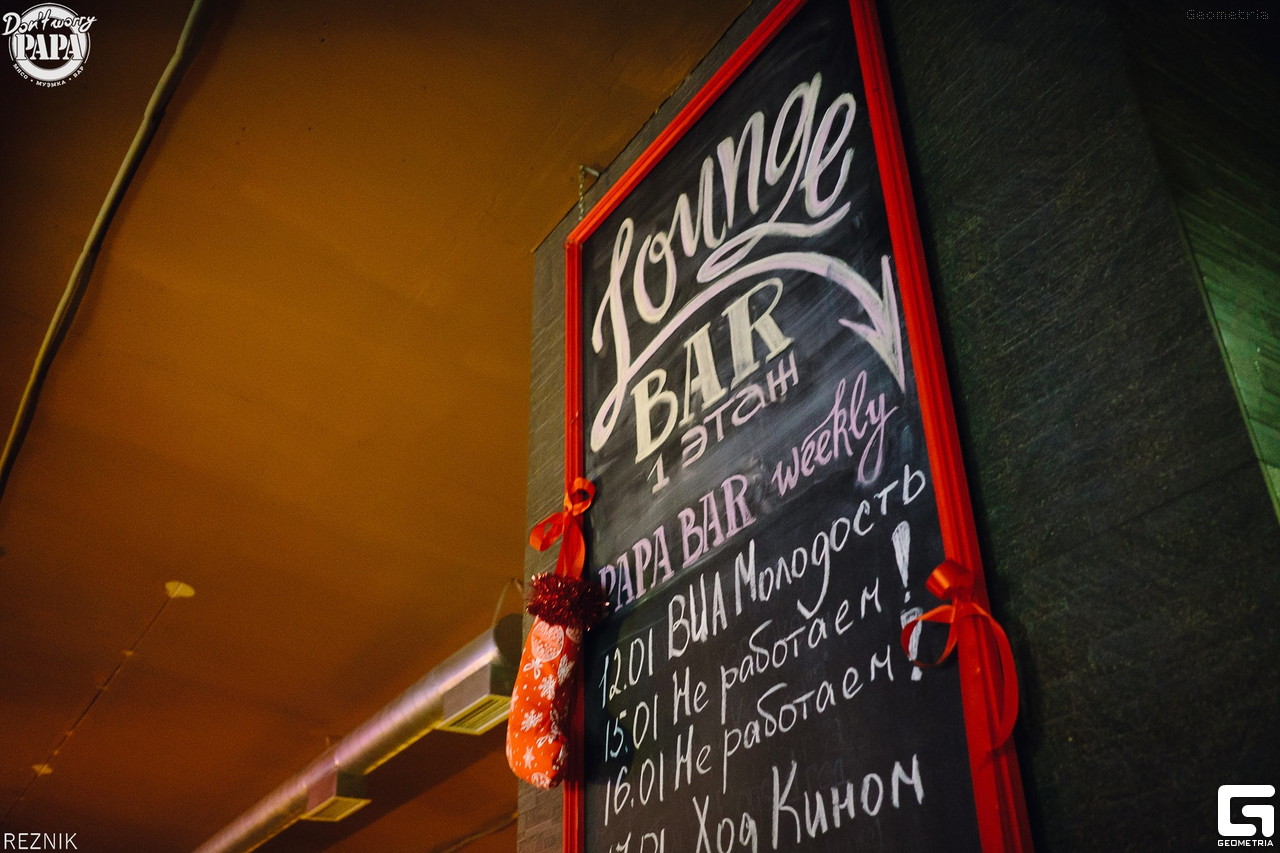 Don't worry
PAPA
МЯСО • МУЗЫКА • БАР
Geometria
Lounge
BAR
1 этаж
PAPA BAR weekly
12.01 ВИА Молодость
15.01 Не работаем!
16.01 Не работаем!
17.01 Ход Кином
REZNIK
GEOMETRIA